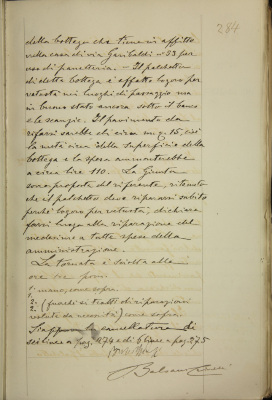 284
della bottega che tiene in affitto
nella casa di via Garibaldi n° 33 per
uso di panetteria. – Il palchetto
di detta bottega è affatto logoro per
vetustà nei luoghi di passaggio ma
in buono stato ancora sotto il banco
e le scansie. Il pavimento da
rifarsi sarebbe di circa m.q. 15, cioè
la metà circa della superficie della
bottega e la spesa ammonterebbe
a circa lire 110. – La Giunta
sovra proposta del riferente, ritenuto
che il palchetto deve ripararsi subito
perché logoro per vetustà, dichiara
farsi luogo alla riparazione del
medesimo a tutte spese della
amministrazione.
La tornata è sciolta alle
ore tre pom.
1: mano, come sopra
2: (fuorchè si tratti di riparazioni
vestute da necessità) come sopra.
Si approva cancellatura di
sei linee a pag. 274 e di 6 linee a pag. 275